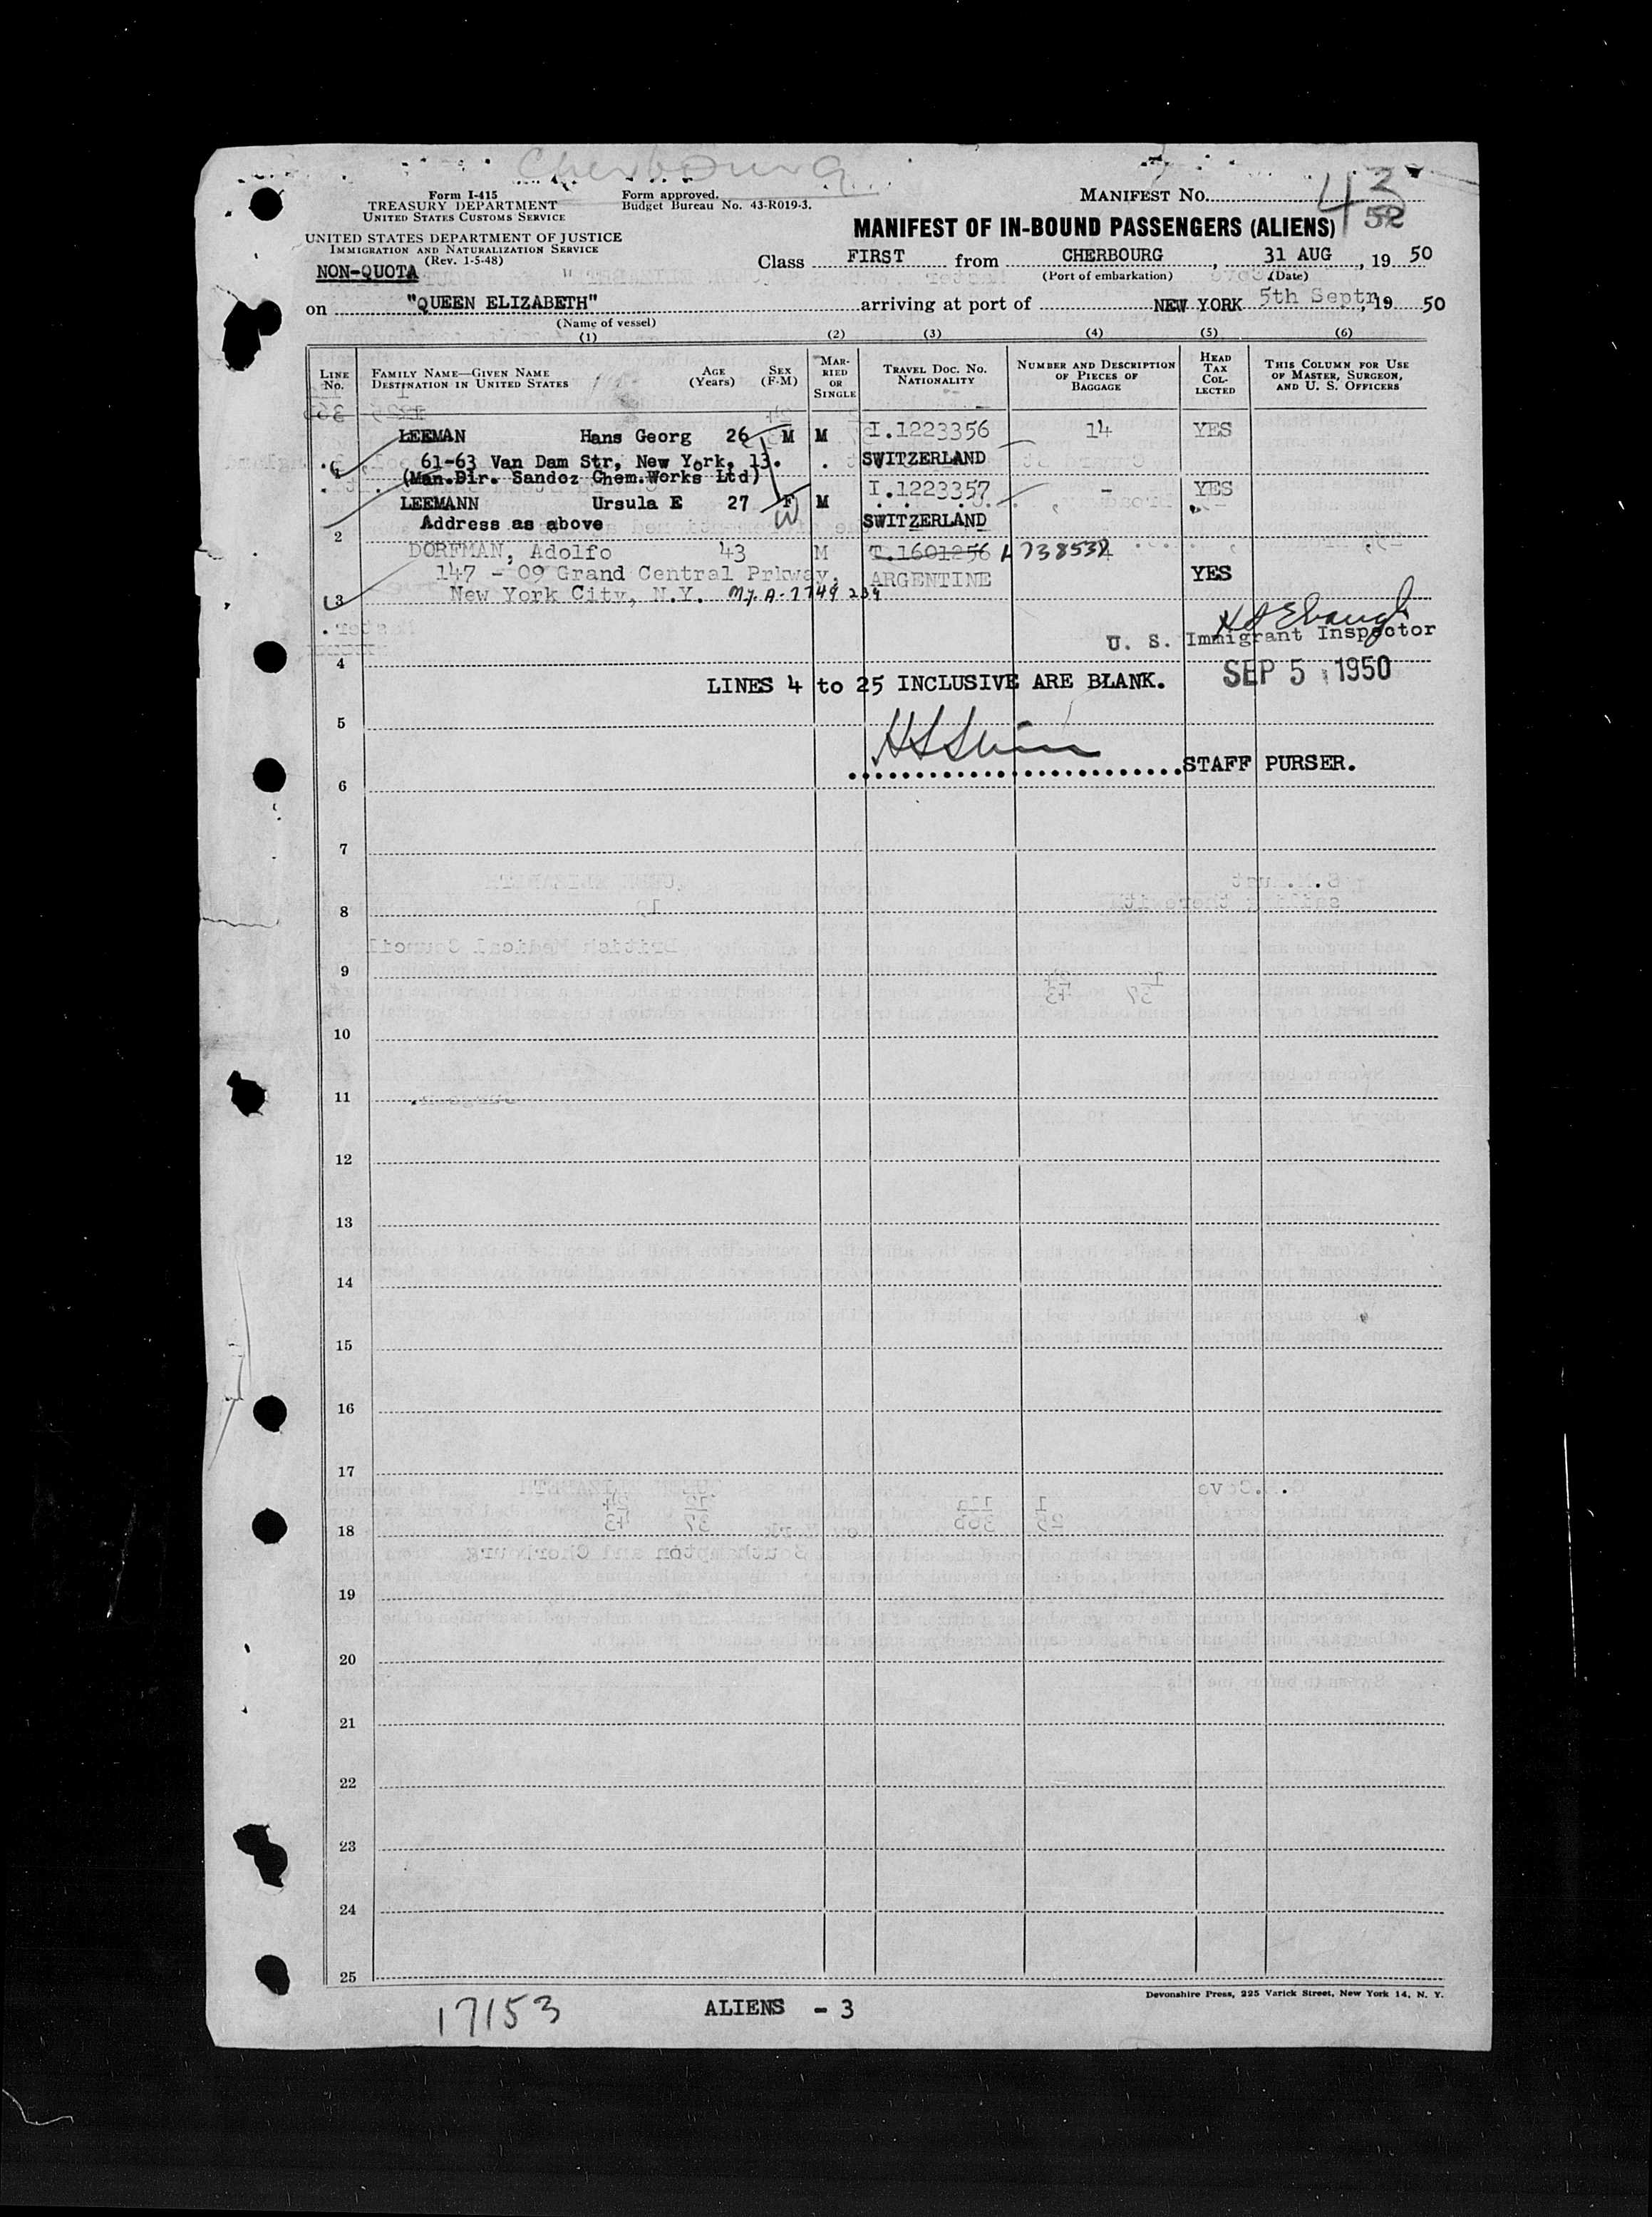 Cherbourg
Form I-415
TREASURY DEPARTMENT
UNITED STATES CUSTOMS SERVICE
Form approved.
Budget Bureau No. 43-R019-3.
MANIFEST No. 43
52
UNITED STATES DEPARTMENT OF JUSTICE
IMMIGRATION AND NATURALIZATION SERVICE
(Rev. 1-5-48)
MANIFEST OF IN-BOUND PASSENGERS (ALIENS)
NON-QUOTA
Class FIRST from CHERBOURG, 31 AUG, 19 50
(Port of embarkation) (Date)
on "QUEEN ELIZABETH" arriving at port of NEW YORK 5th Septr., 19 50
(Name of vessel)
(1) (2) (3) (4) (5) (6)
LINE No.
FAMILY NAME—GIVEN NAME
DESTINATION IN UNITED STATES
AGE (Years)
SEX (F-M)
MARRIED OR SINGLE
TRAVEL DOC. NO. NATIONALITY
NUMBER AND DESCRIPTION OF PIECES OF BAGGAGE
HEAD TAX COLLECTED
THIS COLUMN FOR USE OF MASTER, SURGEON, AND U. S. OFFICERS
LEEMAN Hans Georg 26 M M I.1223356 14 YES
61-63 Van Dam Str, New York, 13. SWITZERLAND
(Man.Dir. Sandoz Chem.Works Ltd)
LEEMANN Ursula E 27 F M I.1223357 - YES
W
Address as above SWITZERLAND
2
DORFMAN, Adolfo 43 M T.1601256
147 - 09 Grand Central Prkway, ARGENTINE YES
3 New York City, N.Y.
U. S. Immigrant Inspector
4
SEP 5 1950
LINES 4 to 25 INCLUSIVE ARE BLANK.
5
STAFF PURSER.
6
7
8
9
10
11
12
13
14
15
16
17
18
19
20
21
22
23
24
25
Devonshire Press, 225 Varick Street, New York 14, N. Y.
17153
ALIENS - 3